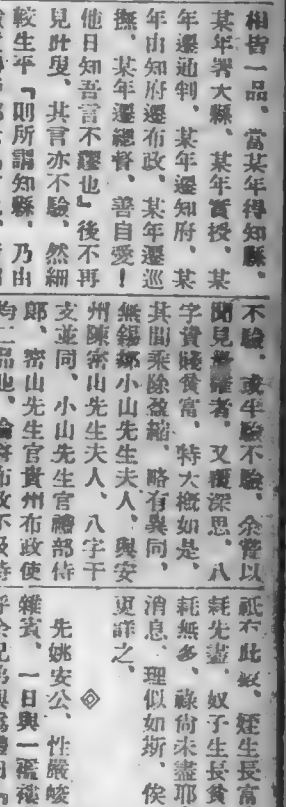 相皆一品、當某年得知縣、
某年署大縣、某年實授、某
年遷通判、某年遷知府、某
年由知府遷布政、某年遷巡
撫、某年遷總督、善自愛！
他日知吾言不謬也』後不再
見此叟、其言亦不驗、然細
較生平『則所謂知縣、乃由
不驗、或半驗半不驗、余嘗以
聞見最確者、又覆深思、八
字貴賤貧富、特大概如是、
其間乘除盈縮、略有異同、
無錫鄒小山先生夫人、與安
州陳密山先生夫人、八字干
支並同、小山先生官禮部侍
郎、密山先生官貴州布政使
均二品也、
祗不此奴、姪生長富
耗先盡、奴子生長貧
耗無多、祿尚未盡耶
消息、理似如斯、俟
更詳之、
◇
先姚安公、性嚴峻
雜賓、一日與一襤褸